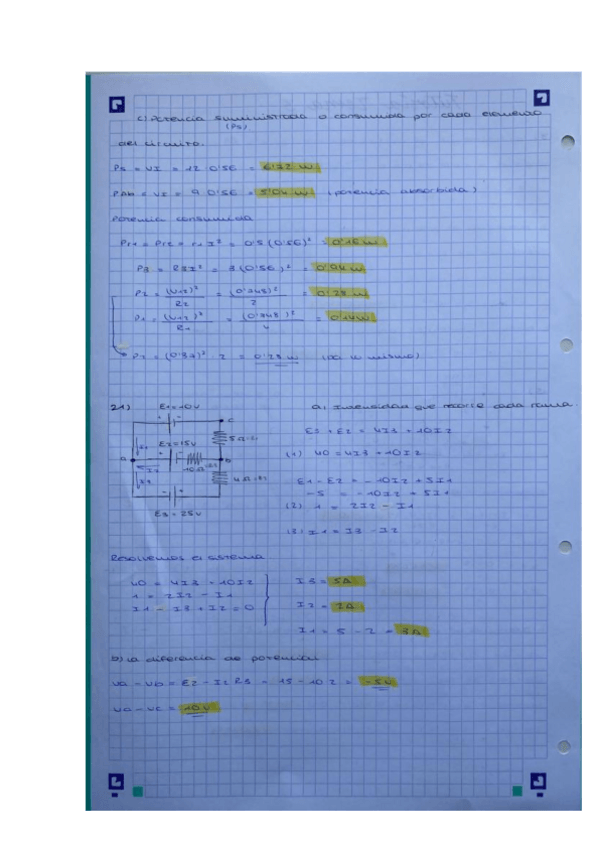 c) Potencia suministrada o consumida por cada elemento
(Ps)
del circuito.
Ps = VI = 12 · 0'56 = 6'72 W
PAM = VI = 9 · 0'56 = 5'04 W (potencia absorbida)
Potencia consumida
Pr1 = Pr2 = r1 I² = 0'5 (0'56)² = 0'16 W
P3 = R3I² = 3 (0'56)² = 0'94 W
P2 = (V12)² / R2 = (0'748)² / 2 = 0'28 W
P1 = (V12)² / R1 = (0'748)² / 4 = 0'14 W
P2 = (0'37)² · 2 = 0'28 W (da lo mismo)
21) E1 = 10V
a) Intensidad que recorre cada rama.
C
5Ω
E2 = 15V
A
B
10Ω
4Ω
E3 = 25V
E3 + E2 = 4I3 + 10I2
(1) 40 = 4I3 + 10I2
E1 - E2 = -10I2 + 5I1
-5 = -10I2 + 5I1
(2) 1 = 2I2 - I1
(3) I1 = I3 - I2
Resolvemos el sistema
40 = 4I3 + 10I2
1 = 2I2 - I1
I1 - I3 + I2 = 0
I3 = 5A
I2 = 2A
I1 = 5 - 2 = 3A
b) La diferencia de potencial
Va - Vb = E2 - I2 R3 = 15 - 10 · 2 = -5V
Va - Vc = 10V